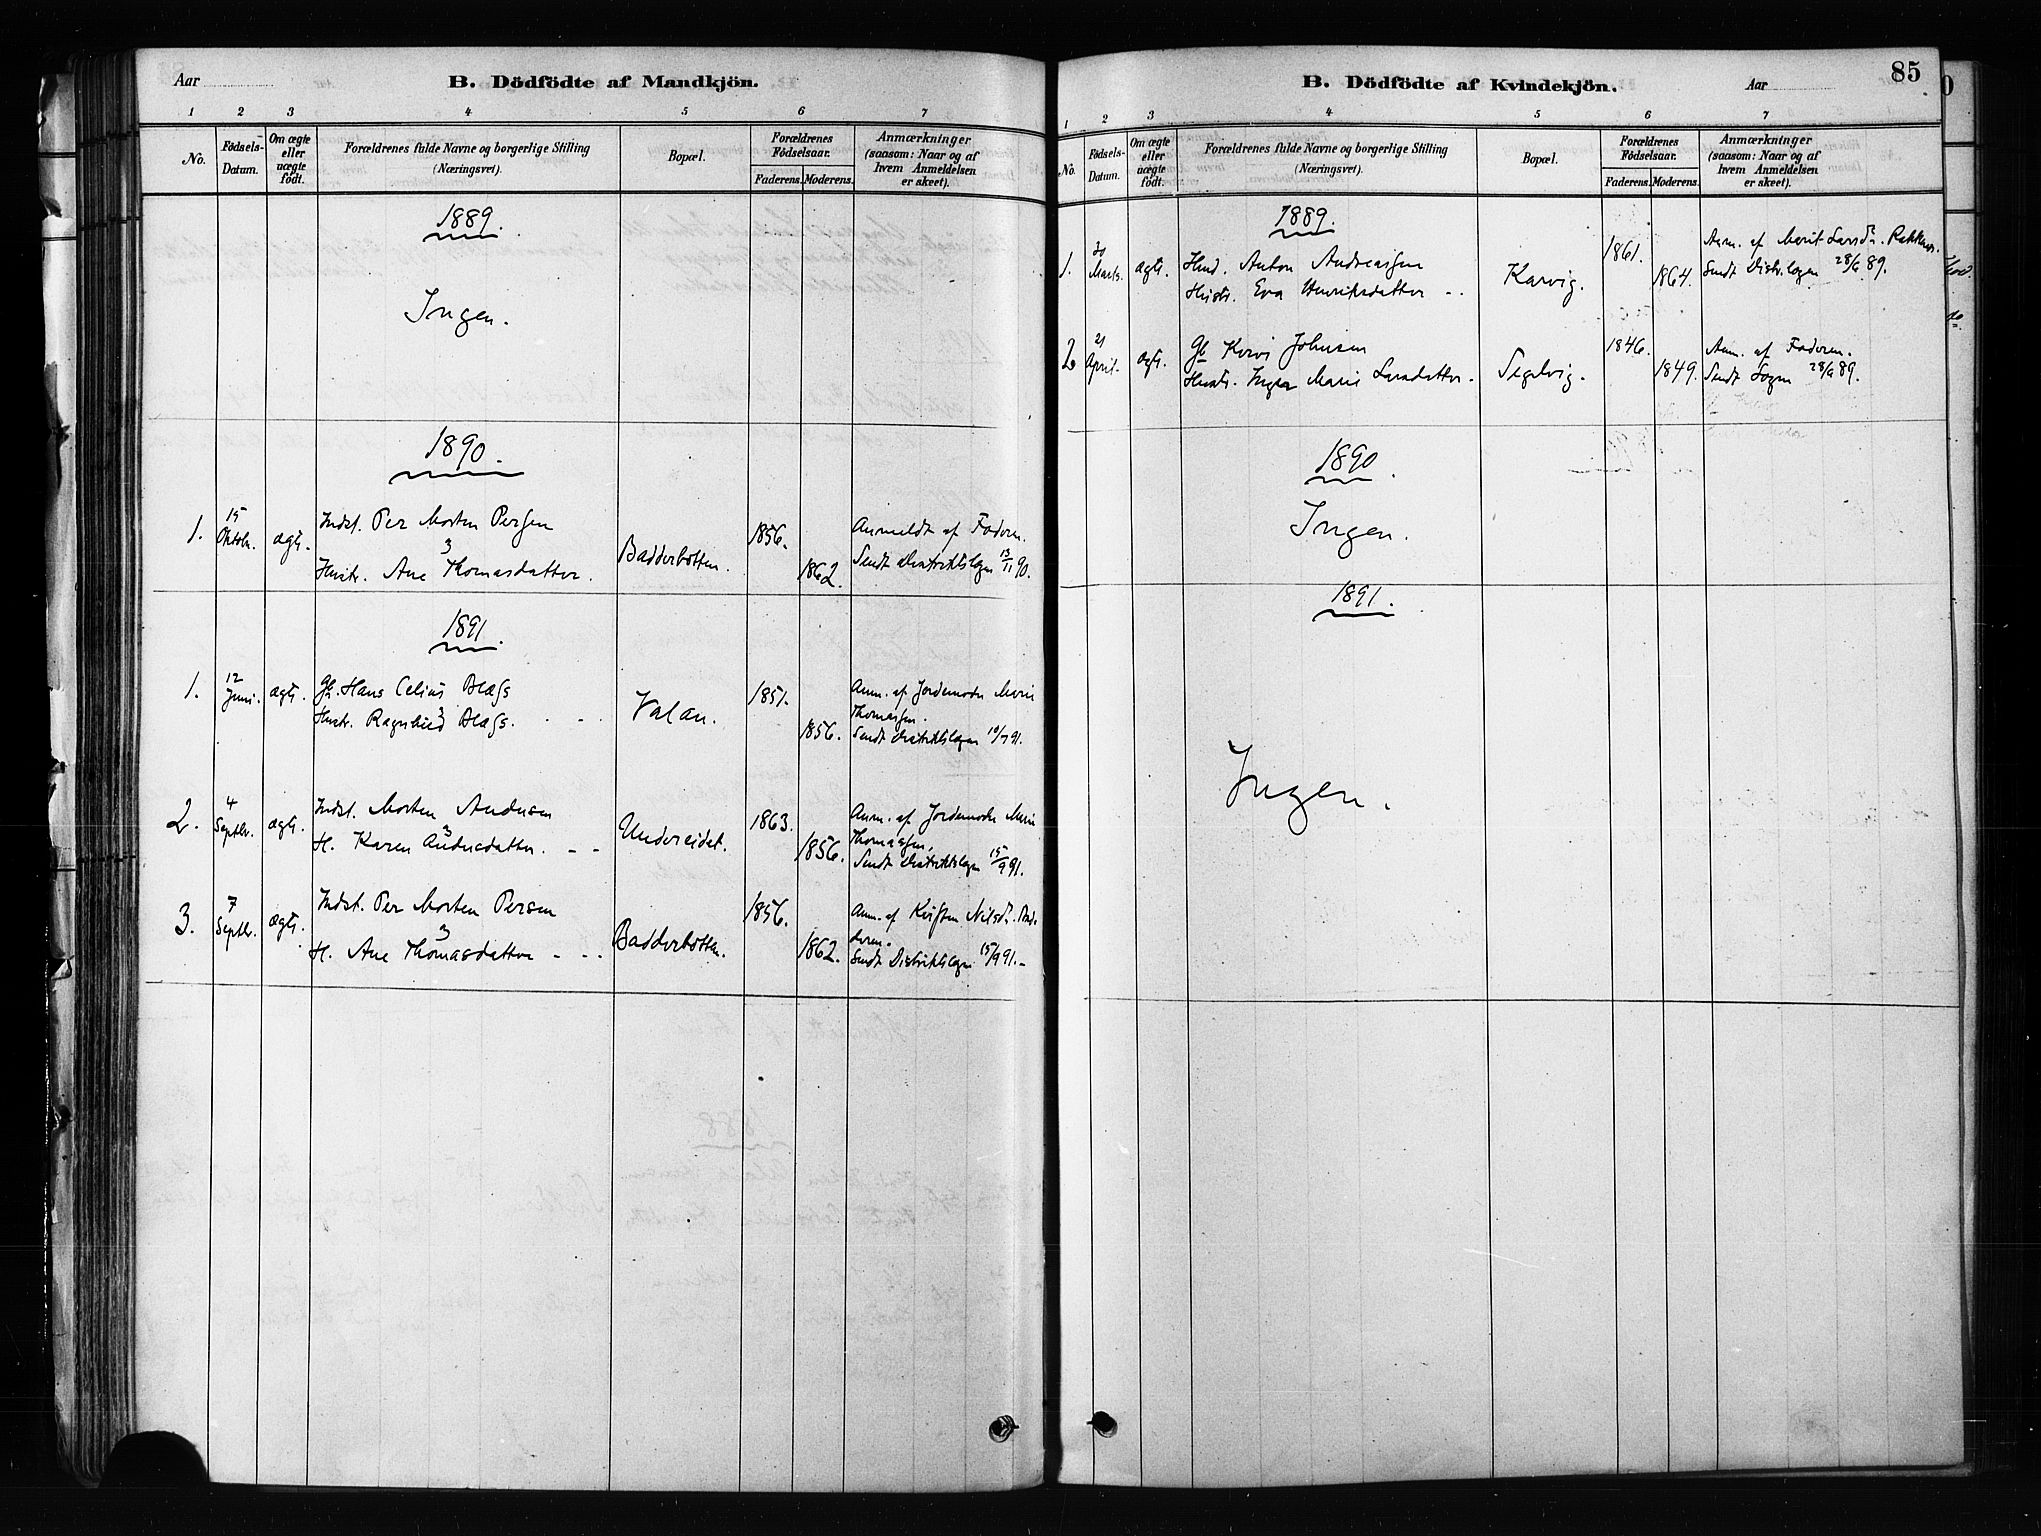 Aar
B. Dödfödte af Mandkjön.
1 2 3 4 5 6 7
No.
Födsels-
Datum.
Om ægte
eller
uægte
födt.
Forældrenes fulde Navne og borgerlige Stilling
(Næringsvei).
Bopæl.
Forældrenes
Födselsaar.
Faderens. Moderens.
Anmærkninger
(saasom: Naar og af
hvem Anmeldelsen
er skeet).
1889.
Ingen.
1890.
1. 15 Oktob. ægte. Indst. Per Morten Persen
Hustr. Ane Thomasdatter.
3
Badderbotten. 1856. 1862.
Anmeldt af Faderen.
Sendt Distriktslægen 15/11 90.
1891.
1. 12 Juni. ægte. Gb. Hans Celius Blæss
Hustr. Ragnhild Blæss.
3
Valan. 1851. 1856.
Anm. af Jordemoder Marie
Thomassen.
Sendt Distriktslægen 10/7 91.
2. 4 Septbr. ægte. Indst. Morten Andersen
H. Karen Andersdatter.
3
Undereidet. 1863. 1856.
Anm. af Jordemoder Marie
Thomassen.
Sendt Distriktslægen 15/9 91.
3. 7 Septbr. ægte. Indst. Per Morten Persen
H. Ane Thomasdatter
3
Badderbotten. 1856. 1862.
Anm. af Kirsten Nilsdr. Bad-
deren.
Sendt Distriktslægen 15/9 91.
85
B. Dödfödte af Kvindekjön.
Aar
1 2 3 4 5 6 7
No.
Födsels-
Datum.
Om ægte
eller
uægte
födt.
Forældrenes fulde Navne og borgerlige Stilling
(Næringsvei).
Bopæl.
Forældrenes
Födselsaar.
Faderens. Moderens.
Anmærkninger
(saasom: Naar og af
hvem Anmeldelsen
er skeet).
1889.
1. 30 Marts. ægte. Anton Andreassen
Hustr. Eva Henriksdatter
Karvig. 1861. 1864.
Anm. af Marit Larsdr.
Sendt Distr.lægen 28/6 89.
2 21 April. ægte. Gb Johnsen
Hustr. Inger Marie Larsdatter.
Segelvig. 1846. 1849.
Anm. af Faderen.
Sendt Lægen 28/6 89.
1890.
Ingen.
1891.
Ingen.